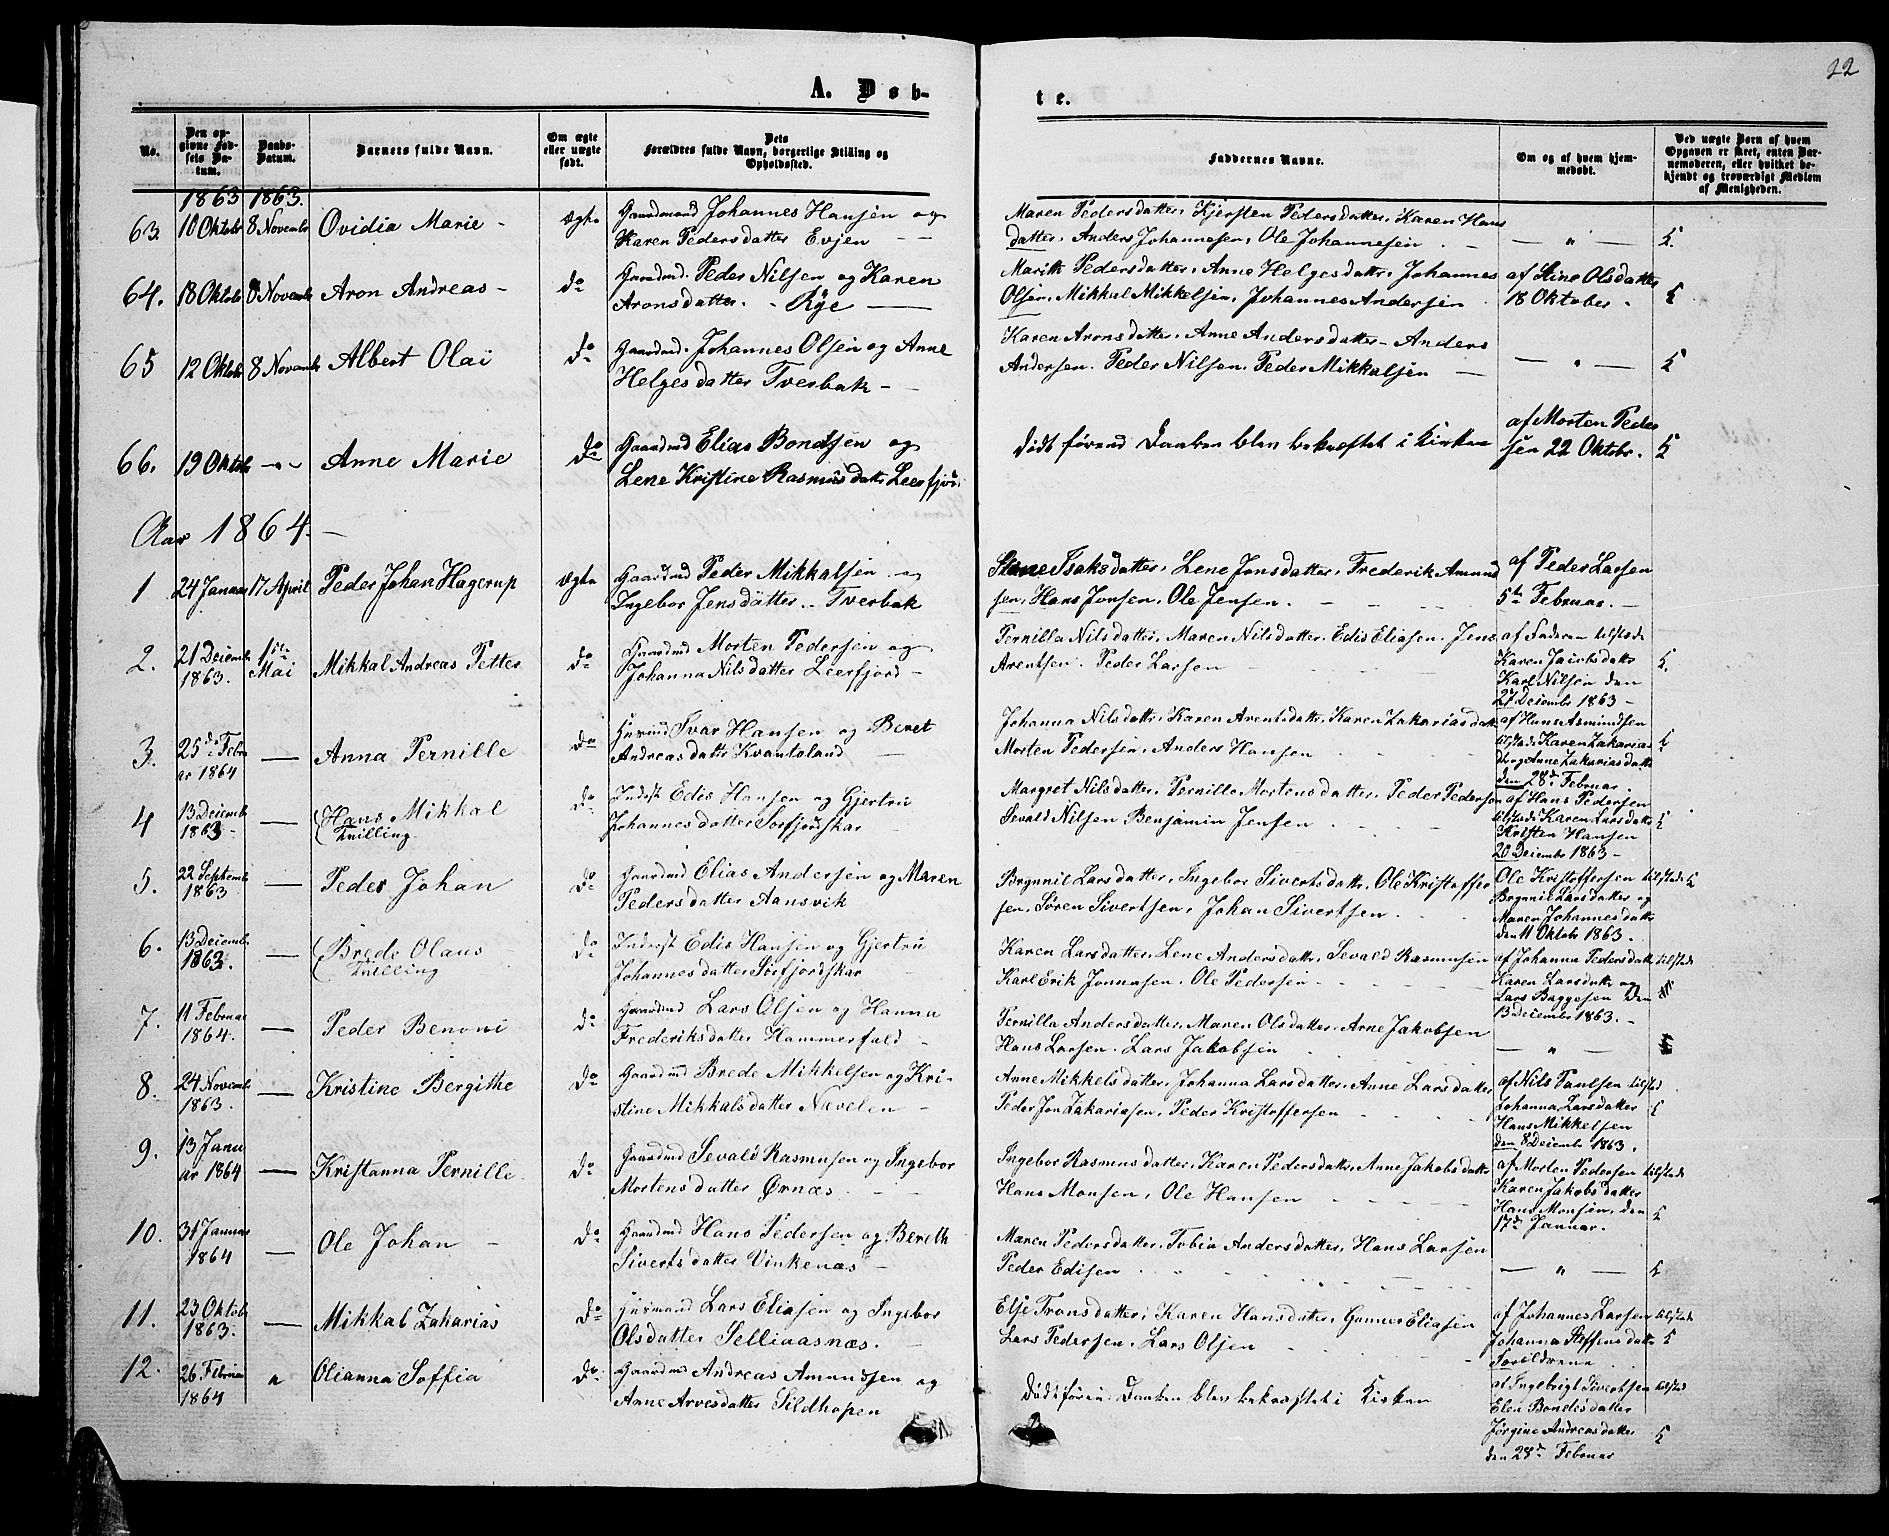 22
A. Døb-
te.
No.
Den op-
givne Fød-
sels Da-
tum.
Daabs-
Datum.
Barnets fulde Navn.
Om ægte
eller uægte
født.
Dets
Forældres fulde Navn, borgerlige Stilling og
Opholdssted.
Faddernes Navne.
Om og af hvem hjem-
medøbt.
Ved uægte Børn af hvem
Opgaven er skeet, enten Bar-
nemoderen, eller hvilket be-
kjendt og troværdigt Medlem
af Menigheden.
1863 1863.
63. 10 Oktobr 8 Novembr Ovidia Marie - ægte Gaardmand Johannes Hansen og
Karen Pedersdatter Evjen - -
Maren Pedersdatter, Kjersten Pedersdatter, Karen Hans
datter, Anders Johannesen, Ole Johannesen. - — " —
64. 18 Oktobr 8 Novembr Aron Andreas - do Gaardmd. Peder Nilsen og Karen
Aronsdatter. - Rye —
Marith Pedersdatter, Anne Helgesdattr, Johannes
Olsen, Mikkal Mikkelsen, Johannes Andersen
af Stine Olsdatter
18 Oktober.
65 12 Oktobr 8 Novembr Albert Olai do Gaardmd. Johannes Olsen og Anne
Helgesdatter Tverbak - -
Karen Aronsdatter, Anne Andersdatter - Anders
Andersen. Peder Nilsen. Peder Mikkalsen — — " —
66. 19 Oktobr -"- Anne Marie do Gaardmd Elias Bondesen og
Lene Kristine Rasmusdattr Leerfjord
Dødt førend Daaben blev bekræftet i Kirken
af Morten Peder
sen 22 Oktobr.
Aar 1864. —
1 24 Januar 17 April Peder Johan Hagerup ægte Gaardmd Peder Mikkalsen og
Ingebor Jensdatter. - Tverbak
Stine Isaksdatter, Lene Jonsdatter, Frederik Amund
sen, Hans Jonsen, Ole Jensen. - - -
af Peder Larsen
5te Februar. -
2. 21 Decembr 1863. 1ste Mai Mikkal Andreas Petter do Gaardmd Morten Pedersen og
Johanna Nilsdatter Leerfjord -
Pernilla Nilsdatter, Maren Nilsdatter, Edis Eliasen. Jens
Arentsen. Peder Larsen -
af Faderen tilstede
Karen Jacobsdattr
Karl Nilsen den
27 Decembr 1863 -
3. 25de Febru
ar 1864 — Anna Pernille do Husmd Ivar Hansen og Beret
Andreasdattr Kvantoland
Johanna Nilsdattr, Karen Arentsdattr, Karen Zakariasdattr
Morten Pedersen, Anders Hansen
af Hans Asmindsen
tilstede Karen Zakarias
dtr og Anne Zakariasdattr
den 28de Februar.
4 13 Decembr
1863 - — Hans Mikkal
Tvilling do Inderst Edis Hansen og Gjertru
Johannesdatter Sørfjordskar
Margret Nilsdatter, Pernille Mortensdatter, Peder Pedersen
Sevald Nilsen Benjamin Jensen
af Hans Pedersen
tilstede Karen Larsdatter
Kristen Hansen
20 Decembr 1863 -
5. 22 Septembr
1863 — Peder Johan do Gaardmd Elias Andersen og Maren
Pedersdatter Aansvik
Brynnil Larsdatter, Ingebor Sivertsdattr, Ole Kristoffer
sen, Søren Sivertsen, Johan Sivertsen
Ole Kristoffersen tilstede
Brynnil Larsdatter og
Maren Johannesdattr
den 11 Oktobr 1863.
6. 13 Decembr
1863. — Brede Olaus
Tvilling do Inderst Edis Hansen og Gjertru
Johannesdatter Sørfjordskar
Karen Larsdatter, Lene Andersdattr, Sevald Rasmusen
Karl Erik Jonnasen, Ole Pedersen
af Johanna Pedersdattr tilstede
Karen Larsdattr og
Lars Baggesen den
13 December 1863. -
7. 11 Februar
1864. — Peder Benoni do Gaardmd Lars Olsen og Hanna
Frederiksdatter Hammerfald -
Pernilla Andersdatter, Maren Olsdatter, Arne Jakobsen
Hans Larsen. Lars Jakobsen — " —
8. 24 Novembr
1863. — Kristine Bergithe do Gaardmd Brede Mikkelsen og Kri-
stine Mikkalsdatter Nævelen -
Anne Mikkelsdatter, Johanna Larsdatter, Anne Larsdatter
Peder Jon Zakariasen, Peder Kristoffersen
af Nils Paulsen tilsted
Johanna Larsdatter
Hans Mikkelsen
den 8 Decembr 1863.
9. 13 Janu
ar 1864 — Kristanna Pernille. do Gaardmd Sevald Rasmusen og Ingebor
Mortensdatter Ørnæs. - -
Ingebor Rasmusdatter, Karen Pedersdattr, Anne Jakobsdattr
Hans Monsen, Ole Hansen
af Morten Pedersen tilstede
Karen Jakobsdatter
Hans Monsen, den
17de Januar.
10. 31 Januar
1864 — Ole Johan - do Gaardmd Hans Pedersen og Bereth
Sivertsdatter Vinkenæs -
Maren Pedersdatter, Tobia Andersdatter, Hans Larsen
Peder Edisen — " —
11. 23 Oktobr
1863. — Mikkal Zakarias do Husmand Lars Eliasen og Ingebor
Olsdatter Selliaasnæs.
Else Tronsdatter, Karen Hansdatter, Gunner Eliasen
Lars Pedersen, Lars Olsen
af Johannes Larsen tilstede
Johanna Steffensdattr
Forældrene
12. 26 Februar
1864 " Olianna Soffia do Gaardmd Andreas Amundsen og
Anne Arvesdatter Sildhopen
Dødt føren Daaben blev bekræftet i Kirken
af Ingebrigt Sivertsen tilstede
Elen Bondesdatter
Jørgine Andreasdatter
den 28de Februar